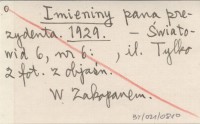 Imieniny pana pre-
zydenta. 1929. – Świato-
wid 6, nr 6: , il. Tylko
2 fot. z objaśn.
W Zakopanem.